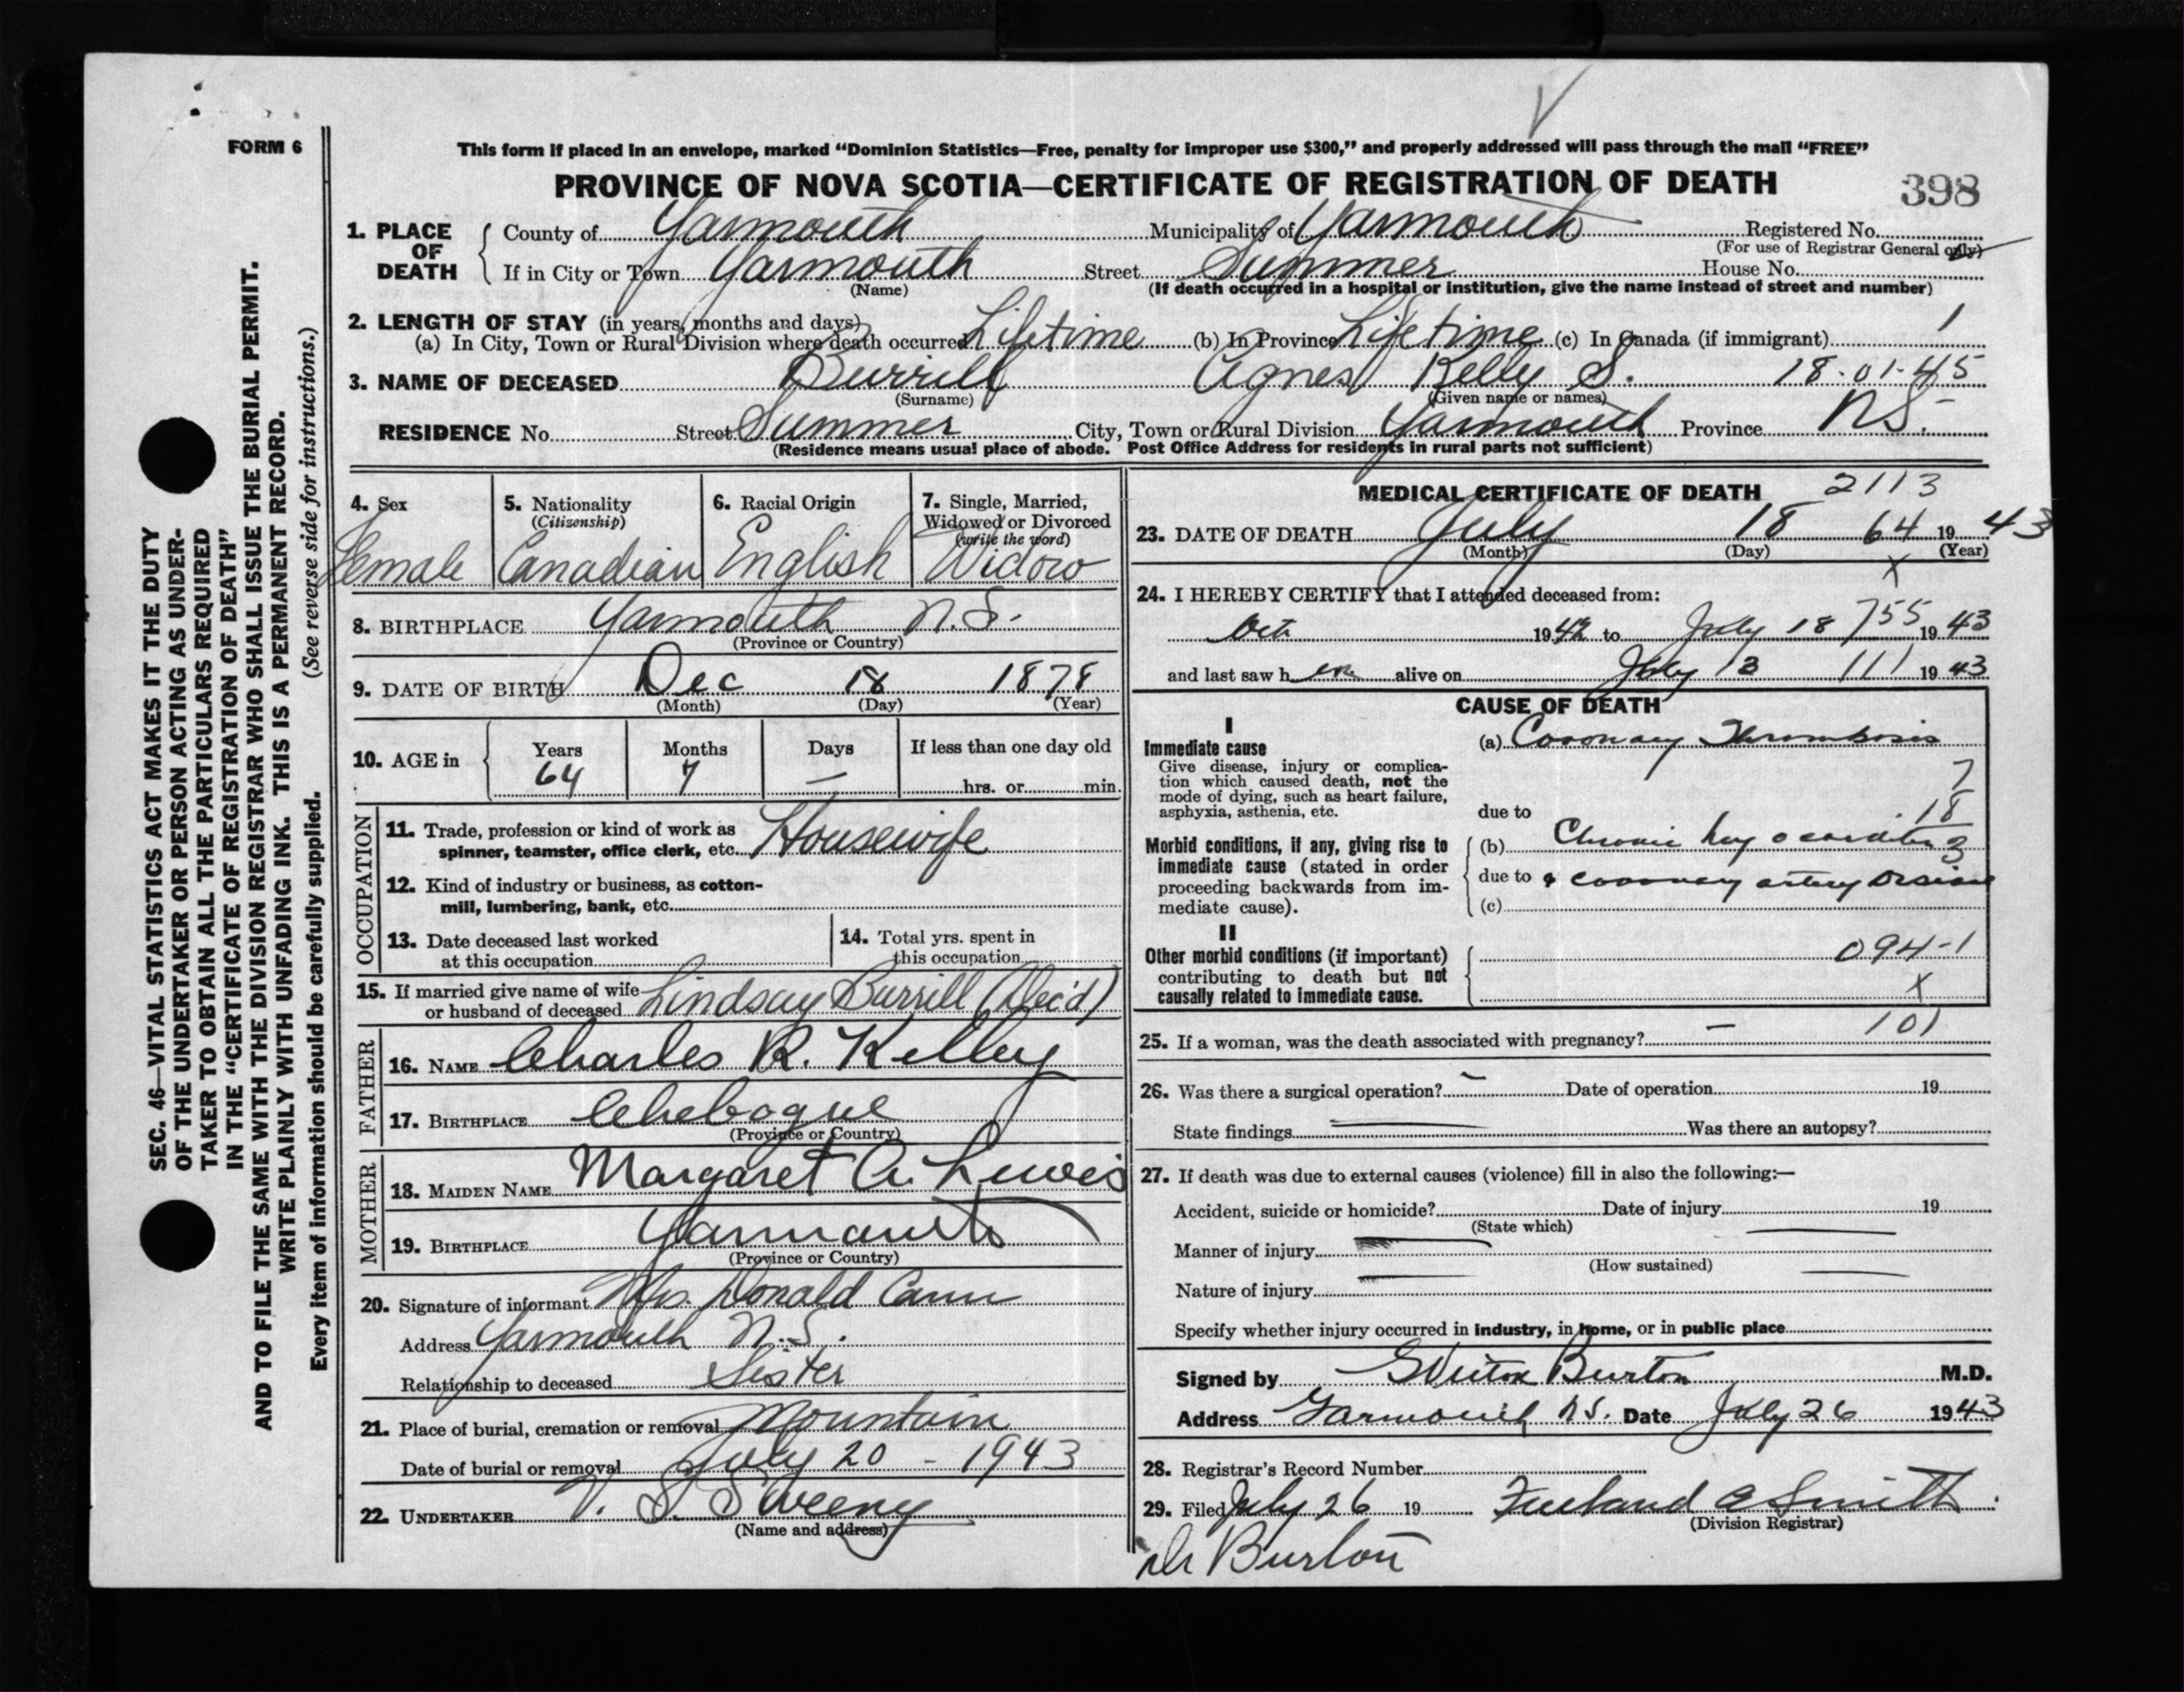 FORM 6
This form if placed in an envelope, marked "Dominion Statistics—Free, penalty for improper use $300," and properly addressed will pass through the mail "FREE"
PROVINCE OF NOVA SCOTIA—CERTIFICATE OF REGISTRATION OF DEATH
398
1. PLACE OF DEATH
County of Yarmouth Municipality of Yarmouth Registered No.
(For use of Registrar General only)
If in City or Town Yarmouth Street Summer House No.
(Name) (If death occurred in a hospital or institution, give the name instead of street and number)
2. LENGTH OF STAY (in years, months and days)
(a) In City, Town or Rural Division where death occurred Lifetime (b) In Province Lifetime (c) In Canada (if immigrant) 1
3. NAME OF DECEASED Burrill Agnes Kelly S. 18-01-45
(Surname) (Given name or names)
RESIDENCE No. Street Summer City, Town or Rural Division Yarmouth Province N.S.
(Residence means usual place of abode. Post Office Address for residents in rural parts not sufficient)
4. Sex
Female
5. Nationality
(Citizenship)
Canadian
6. Racial Origin
English
7. Single, Married,
Widowed or Divorced
(write the word)
Widow
8. BIRTHPLACE Yarmouth N.S.
(Province or Country)
9. DATE OF BIRTH Dec 18 1878
(Month) (Day) (Year)
10. AGE in
Years Months Days If less than one day old
64 7 — hrs. or min.
OCCUPATION
11. Trade, profession or kind of work as
spinner, teamster, office clerk, etc. Housewife
12. Kind of industry or business, as cotton-
mill, lumbering, bank, etc.
13. Date deceased last worked
at this occupation
14. Total yrs. spent in
this occupation
15. If married give name of wife
or husband of deceased Lindsay Burrill (Dec'd)
FATHER
16. NAME Charles R. Kelley
17. BIRTHPLACE Chebogue
(Province or Country)
MOTHER
18. MAIDEN NAME Margaret A. Lewis
19. BIRTHPLACE Yarmouth
(Province or Country)
20. Signature of informant Mrs. Donald Cann
Address Yarmouth N.S.
Relationship to deceased Sister
21. Place of burial, cremation or removal Mountain
Date of burial or removal July 20 - 1943
22. UNDERTAKER V. S. Sweeny
(Name and address)
MEDICAL CERTIFICATE OF DEATH 2113
23. DATE OF DEATH July 18 64 1943
(Month) (Day) (Year)
x
24. I HEREBY CERTIFY that I attended deceased from:
Oct 1942 to July 18 755 1943
and last saw her alive on July 18 111 1943
CAUSE OF DEATH
I
Immediate cause
Give disease, injury or complica-
tion which caused death, not the
mode of dying, such as heart failure,
asphyxia, asthenia, etc.
(a) Coronary Thrombosis
7
18
due to
Morbid conditions, if any, giving rise to
immediate cause (stated in order
proceeding backwards from im-
mediate cause).
(b) Chronic myocarditis 3
due to & coronary artery Disease
(c)
II
Other morbid conditions (if important)
contributing to death but not
causally related to immediate cause.
094-1
x
25. If a woman, was the death associated with pregnancy? — 101
26. Was there a surgical operation? — Date of operation 19
State findings Was there an autopsy?
27. If death was due to external causes (violence) fill in also the following:—
Accident, suicide or homicide? Date of injury 19
(State which)
Manner of injury
(How sustained)
Nature of injury
Specify whether injury occurred in industry, in home, or in public place
Signed by Burton M.D.
Address Yarmouth N.S. Date July 26 1943
28. Registrar's Record Number
29. Filed July 26 19 Smith
(Division Registrar)
Dr Burton
SEC. 46—VITAL STATISTICS ACT MAKES IT THE DUTY
OF THE UNDERTAKER OR PERSON ACTING AS UNDER-
TAKER TO OBTAIN ALL THE PARTICULARS REQUIRED
IN THE "CERTIFICATE OF REGISTRATION OF DEATH"
AND TO FILE THE SAME WITH THE DIVISION REGISTRAR WHO SHALL ISSUE THE BURIAL PERMIT.
WRITE PLAINLY WITH UNFADING INK. THIS IS A PERMANENT RECORD.
Every item of information should be carefully supplied. (See reverse side for instructions.)